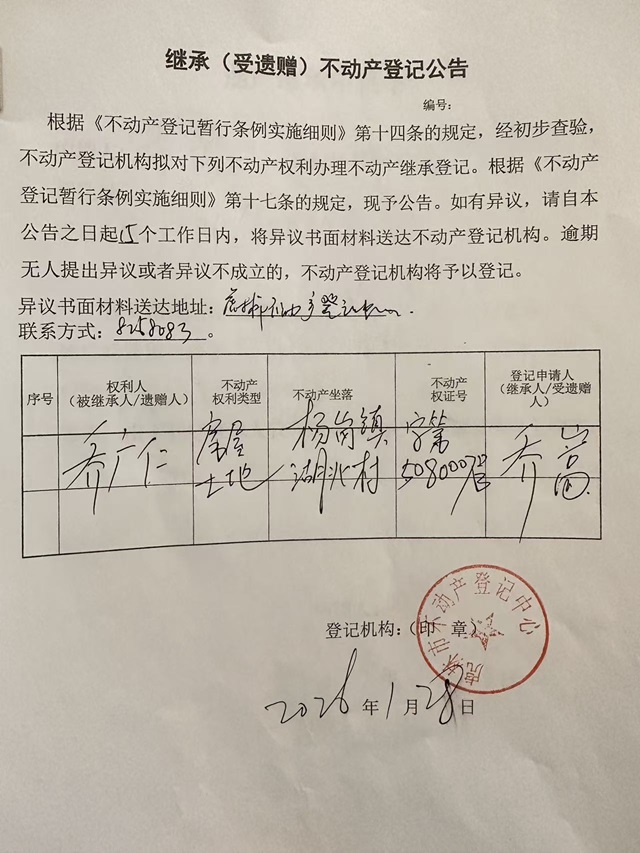 继承（受遗赠）不动产登记公告
编号：
根据《不动产登记暂行条例实施细则》第十四条的规定，经初步查验，
不动产登记机构拟对下列不动产权利办理不动产继承登记。根据《不动产
登记暂行条例实施细则》第十七条的规定，现予公告。如有异议，请自本
公告之日起15个工作日内，将异议书面材料送达不动产登记机构。逾期
无人提出异议或者异议不成立的，不动产登记机构将予以登记。
异议书面材料送达地址：虎林不动产登记中心.
联系方式：8258083。
序号
权利人
（被继承人/遗赠人）
不动产
权利类型
不动产坐落
不动产
权证号
登记申请人
（继承人/受遗赠
人）
乔广仁
房屋
土地
杨岗镇
湖北村
字第
乔嵩
登记机构：（印 章）
虎林市不动产登记中心
2026年1月28日